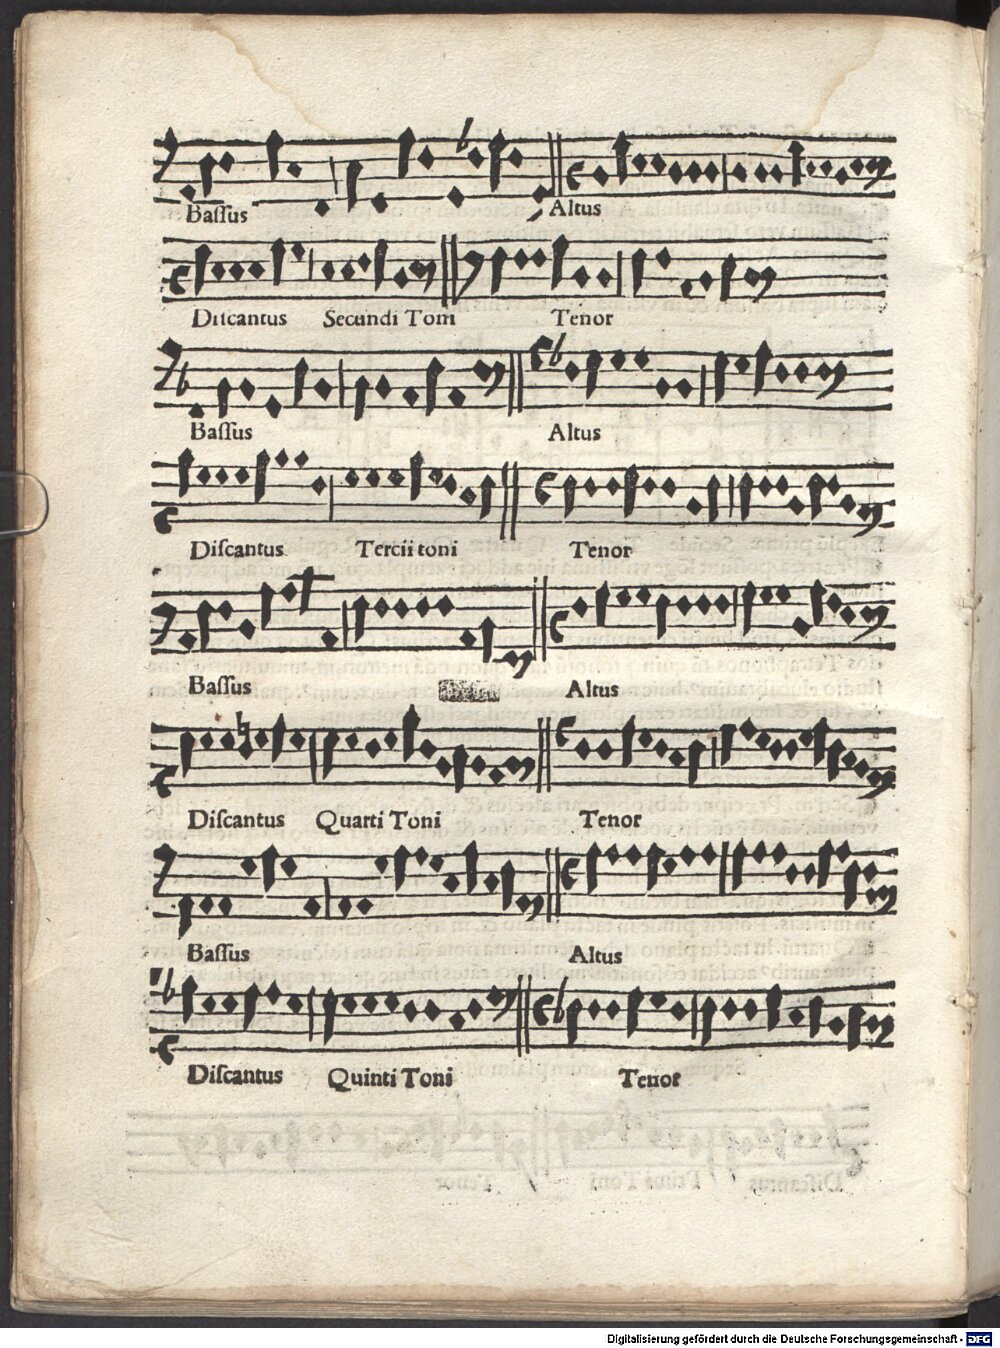 Baſſus Altus
Diſcantus Secundi Toni Tenor
Baſſus Altus
Diſcantus Tercii toni Tenor
Baſſus Altus
Diſcantus Quarti Toni Tenor
Baſſus Altus
Diſcantus Quinti Toni Tenor
Digitalisierung gefördert durch die Deutsche Forschungsgemeinschaft - DFG